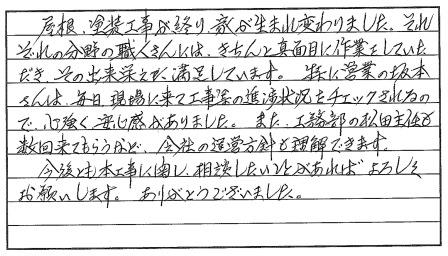 屋根、塗装工事が終り、家が生まれ変わりました。それ
ぞれの分野の職人さんには、きちんと真面目に作業をしていた
だき、その出来栄えに満足しています。特に営業の坂本
さんは、毎日現場に来て工事等の進渉状況をチェックされるの
で、心強く、安心感がありました。また、工務部の松田主任も
数回来てもらうなど、会社の運営方針も理解できます。
今後とも本工事に関し、相談したいことがあればよろしく
お願いします。ありがとうございました。